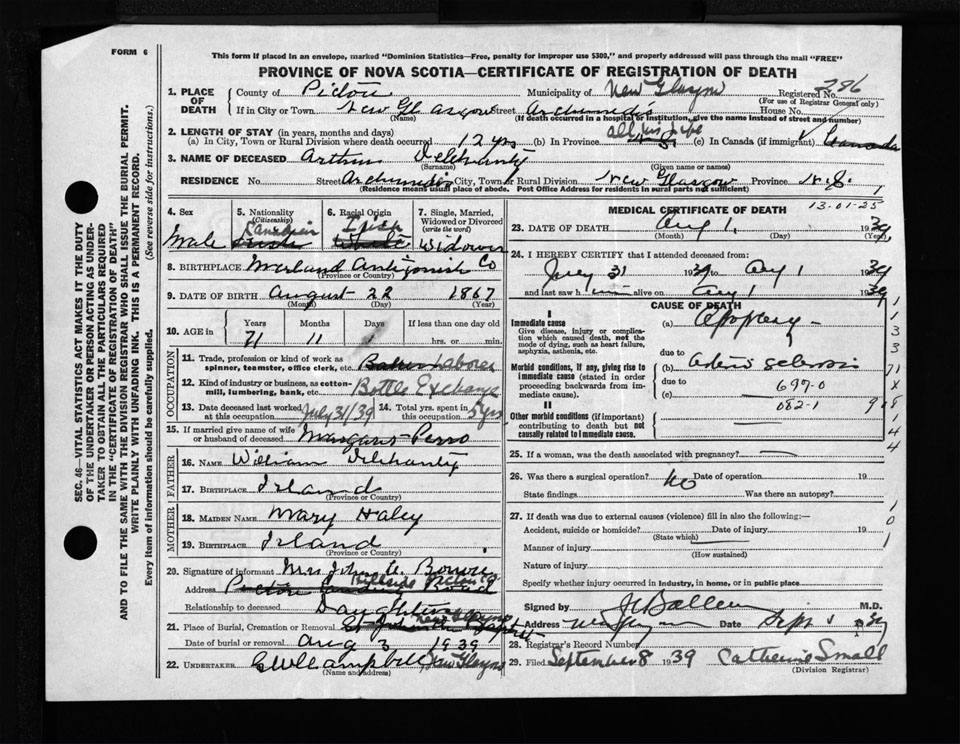 FORM 6
This form if placed in an envelope, marked "Dominion Statistics—Free, penalty for improper use $300," and properly addressed will pass through the mail "FREE"
PROVINCE OF NOVA SCOTIA—CERTIFICATE OF REGISTRATION OF DEATH
1. PLACE OF DEATH County of Pictou Municipality of New Glasgow Registered No. 286
(For use of Registrar General only)
If in City or Town New Glasgow Street House No.
(Name) (If death occurred in a hospital or institution, give the name instead of street and number)
2. LENGTH OF STAY (in years, months and days) all his life
(a) In City, Town or Rural Division where death occurred 12 yrs (b) In Province (c) In Canada (if immigrant) Canada
3. NAME OF DECEASED Arthur Delehanty
(Surname) (Given name or names)
RESIDENCE No. Street City, Town or Rural Division New Glasgow Province N.S.
(Residence means usual place of abode. Post Office Address for residents in rural parts not sufficient)
4. Sex 5. Nationality (Citizenship) 6. Racial Origin 7. Single, Married, Widowed or Divorced (write the word)
Male Canadian Irish Widower
8. BIRTHPLACE Antigonish Co
(Province or Country)
9. DATE OF BIRTH August 22 1867
(Month) (Day) (Year)
10. AGE in Years Months Days If less than one day old
71 11 hrs. or min.
OCCUPATION
11. Trade, profession or kind of work as spinner, teamster, office clerk, etc. Laborer
12. Kind of industry or business, as cotton-mill, lumbering, bank, etc. Bottle Exchange
13. Date deceased last worked at this occupation July 31/39 14. Total yrs. spent in this occupation 5 yrs
15. If married give name of wife or husband of deceased Margaret Perro
FATHER
16. NAME William Delehanty
17. BIRTHPLACE Irland
(Province or Country)
MOTHER
18. MAIDEN NAME Mary Haley
19. BIRTHPLACE Irland
(Province or Country)
20. Signature of informant Mrs John A.
Address Hillside Pictou Co.
Relationship to deceased Daughter
21. Place of Burial, Cremation or Removal New Glasgow
Date of burial or removal Aug 3 1939
22. UNDERTAKER G W Campbell New Glasgow
(Name and address)
MEDICAL CERTIFICATE OF DEATH 13-01-25
23. DATE OF DEATH Aug 1, 1939
(Month) (Day) (Year)
24. I HEREBY CERTIFY that I attended deceased from:
July 31 1939 to Aug 1 1939
and last saw h im alive on Aug 1 1939
CAUSE OF DEATH
I
Immediate cause (a) Apoplexy
Give disease, injury or complication which caused death, not the mode of dying, such as heart failure, asphyxia, asthenia, etc.
due to
Morbid conditions, if any, giving rise to immediate cause (stated in order proceeding backwards from immediate). (b) Arterio sclerosis
due to 697-0
(c) 082-1
II
Other morbid conditions (if important) contributing to death but not causally related to immediate cause.
25. If a woman, was the death associated with pregnancy?
26. Was there a surgical operation? No Date of operation 19
State findings Was there an autopsy?
27. If death was due to external causes (violence) fill in also the following:—
Accident, suicide or homicide? Date of injury 19
(State which)
Manner of injury
(How sustained)
Nature of injury
Specify whether injury occurred in industry, in home, or in public place
Signed by M.D.
Address Date Sept 1 39
28. Registrar's Record Number
29. Filed September 8 1939 Catherine Small
(Division Registrar)
SEC. 46—VITAL STATISTICS ACT MAKES IT THE DUTY
OF THE UNDERTAKER OR PERSON ACTING AS UNDERTAKER TO OBTAIN ALL THE PARTICULARS REQUIRED
IN THE "CERTIFICATE OF REGISTRATION OF DEATH"
AND TO FILE THE SAME WITH THE DIVISION REGISTRAR WHO SHALL ISSUE THE BURIAL PERMIT.
WRITE PLAINLY WITH UNFADING INK. THIS IS A PERMANENT RECORD.
Every item of information should be carefully supplied. (See reverse side for instructions.)